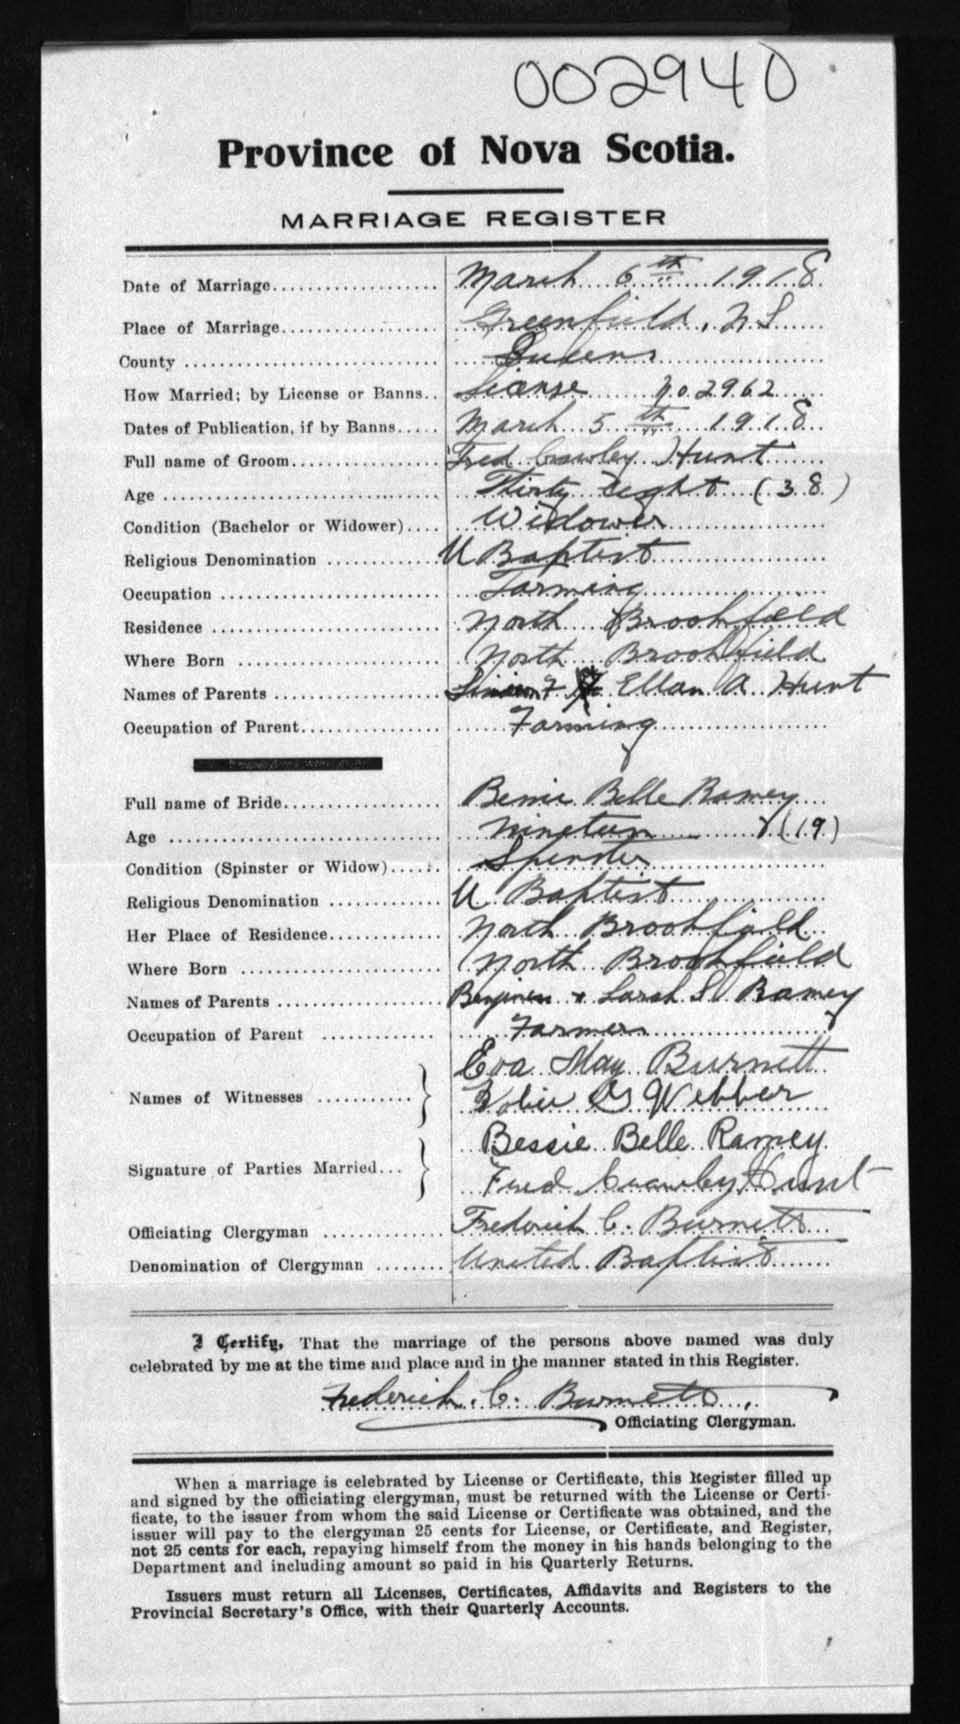 002940
Province of Nova Scotia.
MARRIAGE REGISTER
Date of Marriage.................... March 6th 1918
Place of Marriage................... Greenfield, N S
County .............................. Queens
How Married; by License or Banns.. License No. 2962
Dates of Publication, if by Banns..... March 5th 1918
Full name of Groom.................. Fred Crowley Hunt
Age ................................. Thirty Eight (38)
Condition (Bachelor or Widower).... Widower
Religious Denomination ............. U Baptist
Occupation .......................... Farming
Residence ........................... North Brookfield
Where Born ........................ North Brookfield
Names of Parents .................... Ellen A. Hunt
Occupation of Parent................. Farming
Full name of Bride................... Belle Ramey
Age ................................. Nineteen (19)
Condition (Spinster or Widow)...... Spinster
Religious Denomination ............. U Baptist
Her Place of Residence............. North Brookfield
Where Born ........................ North Brookfield
Names of Parents .................... & Sarah Ramey
Occupation of Parent .............. Farmer
Names of Witnesses ........... } Eva May Burnett
G Webber
Signature of Parties Married... } Bessie Belle Ramey
Fred Crowley Hunt
Officiating Clergyman .............. Frederick C. Burnett
Denomination of Clergyman ........ United Baptist
I Certify, That the marriage of the persons above named was duly
celebrated by me at the time and place and in the manner stated in this Register.
Frederick. C. Burnett
Officiating Clergyman.
When a marriage is celebrated by License or Certificate, this Register filled up
and signed by the officiating clergyman, must be returned with the License or Certi-
ficate, to the issuer from whom the said License or Certificate was obtained, and the
issuer will pay to the clergyman 25 cents for License, or Certificate, and Register,
not 25 cents for each, repaying himself from the money in his hands belonging to the
Department and including amount so paid in his Quarterly Returns.
Issuers must return all Licenses, Certificates, Affidavits and Registers to the
Provincial Secretary's Office, with their Quarterly Accounts.